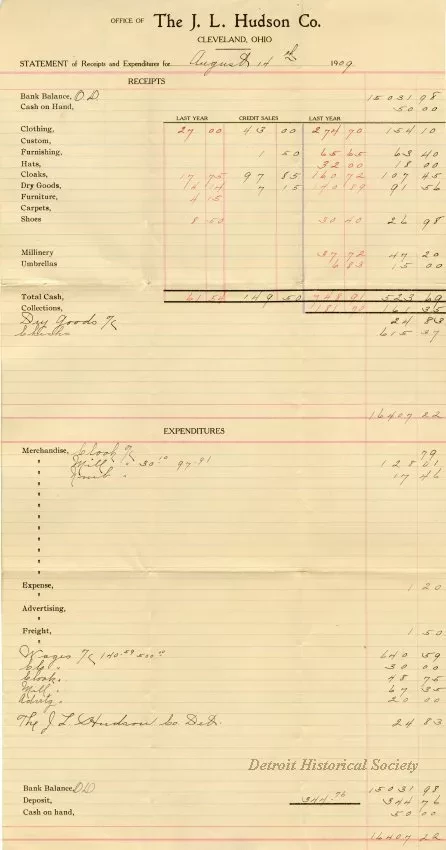 OFFICE OF The J. L. Hudson Co.
CLEVELAND, OHIO
STATEMENT of Receipts and Expenditures for August 14th 1909
RECEIPTS
Bank Balance, O D 15031 98
Cash on Hand, 50 00
LAST YEAR CREDIT SALES LAST YEAR
Clothing, 27 00 43 00 274 70 154 10
Custom,
Furnishing, 1 50 65 65 63 40
Hats, 32 00 18 00
Cloaks, 17 75 97 85 160 72 107 45
Dry Goods, 4 14 7 15 140 89 91 56
Furniture, 4 15
Carpets,
Shoes 8 50 30 40 26 98
Millinery 37 72 47 20
Umbrellas 6 83 15 00
Total Cash, 61 54 149 50 748 91 523 69
Collections, 181 90 161 35
Dry Goods 24 83
Checks 615 37
16407 22
EXPENDITURES
Merchandise, Cloak 79
" Mill " 30 10 97 91 128 01
" " 17 46
"
"
"
"
"
"
"
"
Expense, 1 20
"
Advertising,
"
Freight, 1 50
"
Wages 140.59 500 640 59
" 30 00
Cloak " 48 75
Mill " 67 35
Advtg " 20 00
The J L Hudson Co Det. 24 83
Detroit Historical Society
Bank Balance, O D 15031 98
Deposit, 344.76 344 76
Cash on hand, 50 00
16407 22